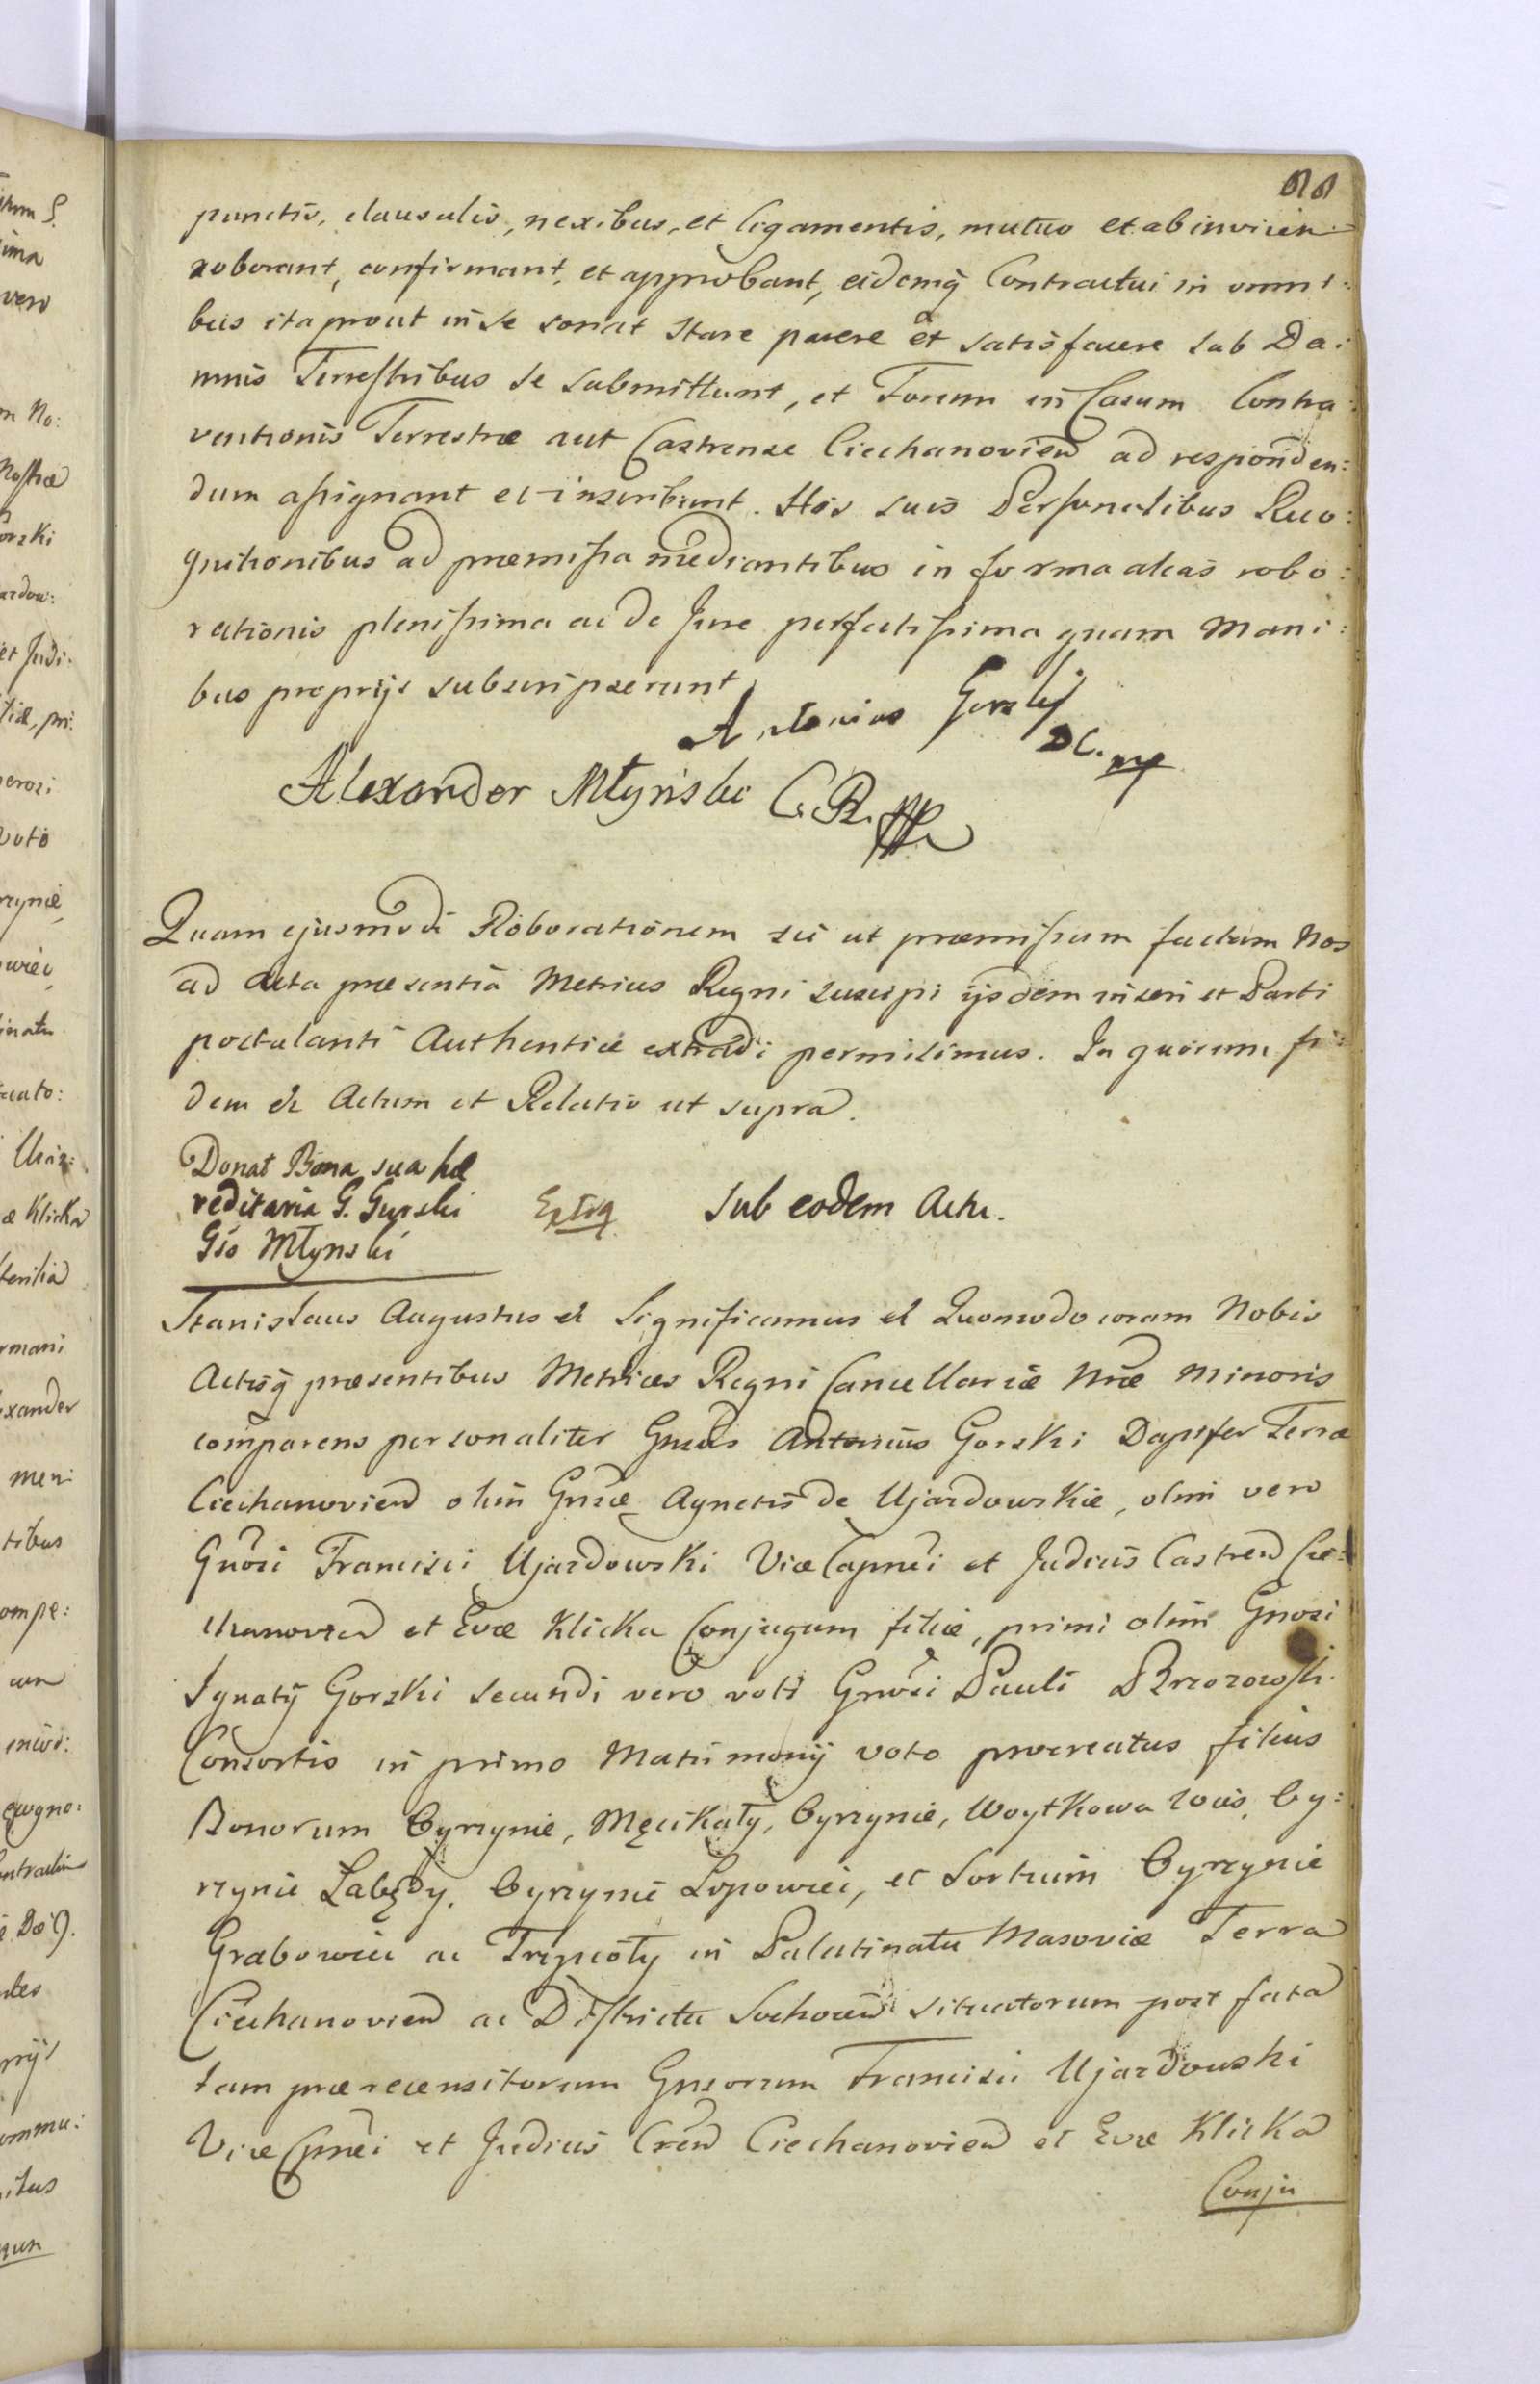 88
punctis, clausulis, nexibus, et ligamentis, mutuo et ab invicem
roborant, confirmant, et approbant, eidemq Contractui in omni:
bus ita prout in se sonat stare parere et satisfacere sub Da:
mnis Terrestribus se submittunt, et Forum in Casum Contra:
ventionis Terrestrae aut Castrense Ciechanovien ad responden:
dum assignant et inscribunt. His suis Personalibus Reco:
gnitionibus ad praemissa mediantibus in forma alias robo:
rationis plenissima ac de Jure perfectissima quam Mani:
bus proprijs subscripserunt
Antonius Gorski
D C. mp
Alexander Młynski C. R. mp
Quam ejusmodi Roborationem sic ut praemissum factam Nos
ad Acta praesentia Metrices Regni suscipi ijsdem inseri et Parti
postulanti Authentice extradi permisimus. In quorum fi:
dem et Actum et Relatio ut supra.
Donat Bona sua hae
reditaria G. Gurski
Gso Młynski
Extra
Sub eodem Actu.
Stanislaus Augustus et Significamus et Quomodo coram Nobis
Actisq praesentibus Metrices Regni Cancellariae Nrae Minoris
comparens personaliter Gnsus Antonius Gorski Dapifer Terrae
Ciechanovien olim Gnsae Agnetis de Ujazdowskie, olim vero
Gnosi Francisci Ujazdowski Vice Capnei et Judicis Castren Cie:
chanovien et Evae Klicka Conjugum filiae, primi olim Gnosi
Ignatij Gorski secundi vero voti Gnosi Pauli Brzozowski
Consortis in primo Matrimonij voto procreatus filius
Bonorum Cyrzynie, Męcikały, Cyrzynie, Woytkowa wies, Cy:
rzynie Łabędy, Cyrzynie Łopowiei, et Sortium Cyrzynie
Grabowiec ac Trzpioły in Palatinatu Masoviae Terra
Ciechanovien ac Districtu Sochocin situatorum post fata
tam praerecensitorum Gnsorum Francisci Ujazdowski
Vice Cpnei et Judicis Cren Ciechanovien et Evae Klicka
Conju